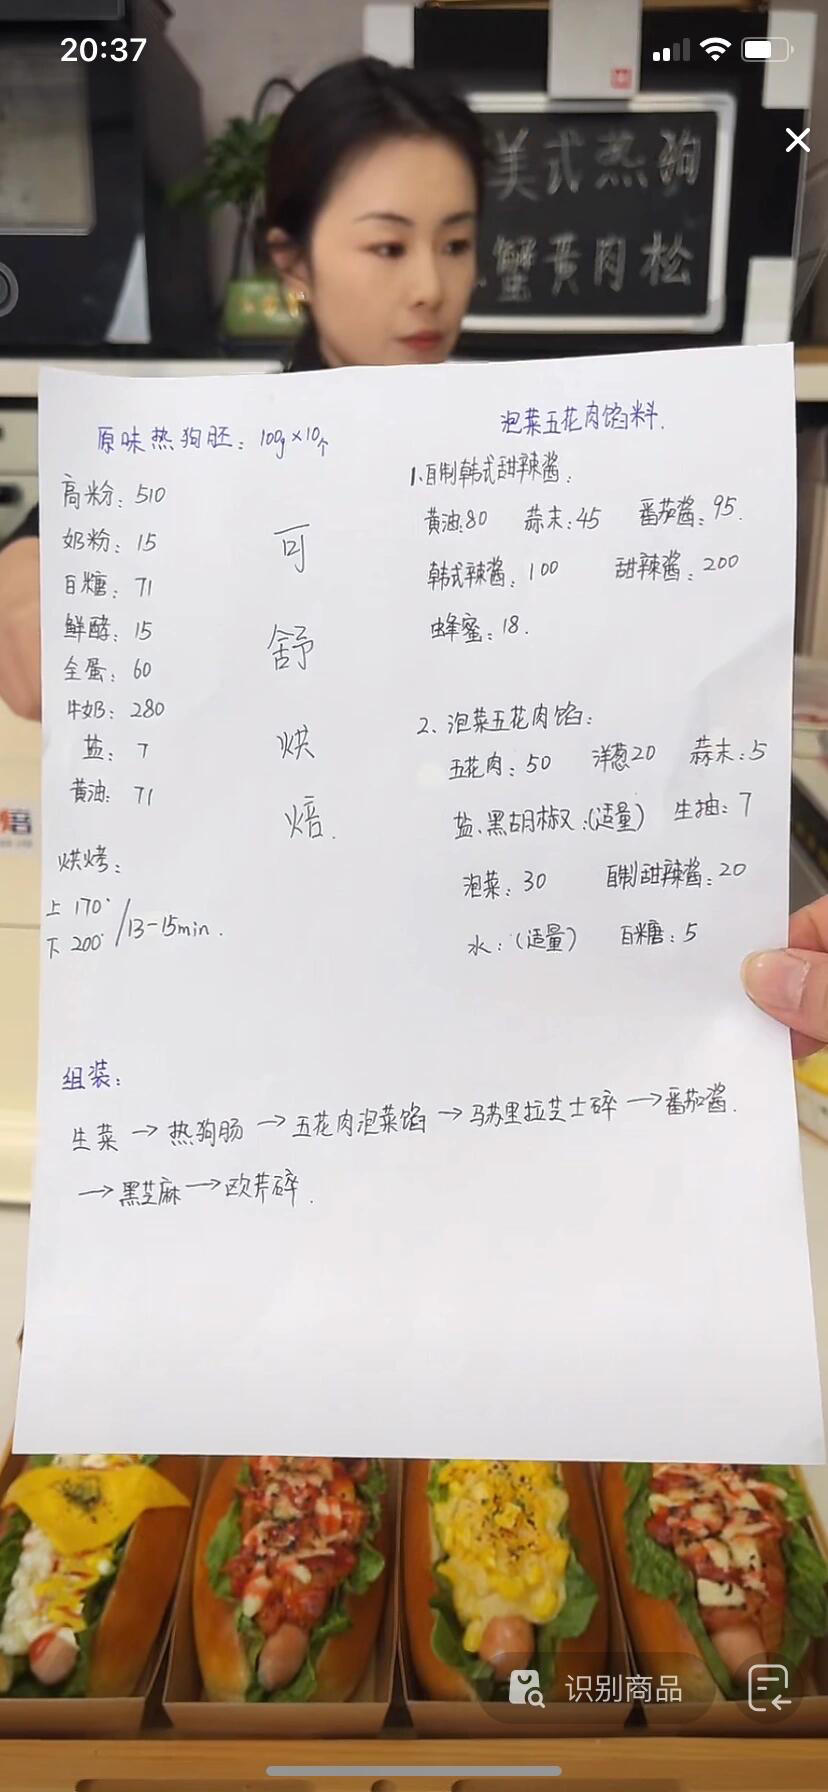 20:37
美式热狗
蟹黄肉松
原味热狗胚：100g×10个
高粉：510
奶粉：15
白糖：71
鲜酵：15
全蛋：60
牛奶：280
盐：7
黄油：71
可
舒
烘
焙.
烘烤：
上 170°
下 200° /13-15min.
泡菜五花肉馅料.
1、自制韩式甜辣酱：
黄油:80 蒜末:45 番茄酱:95.
韩式辣酱:100 甜辣酱:200
蜂蜜:18.
2、泡菜五花肉馅：
五花肉：50 洋葱20 蒜末:5
盐、黑胡椒:(适量) 生抽:7
泡菜：30 自制甜辣酱:20
水：(适量) 白糖:5
组装：
生菜→热狗肠→五花肉泡菜馅→马苏里拉芝士碎→番茄酱.
→黑芝麻→欧芹碎.
识别商品